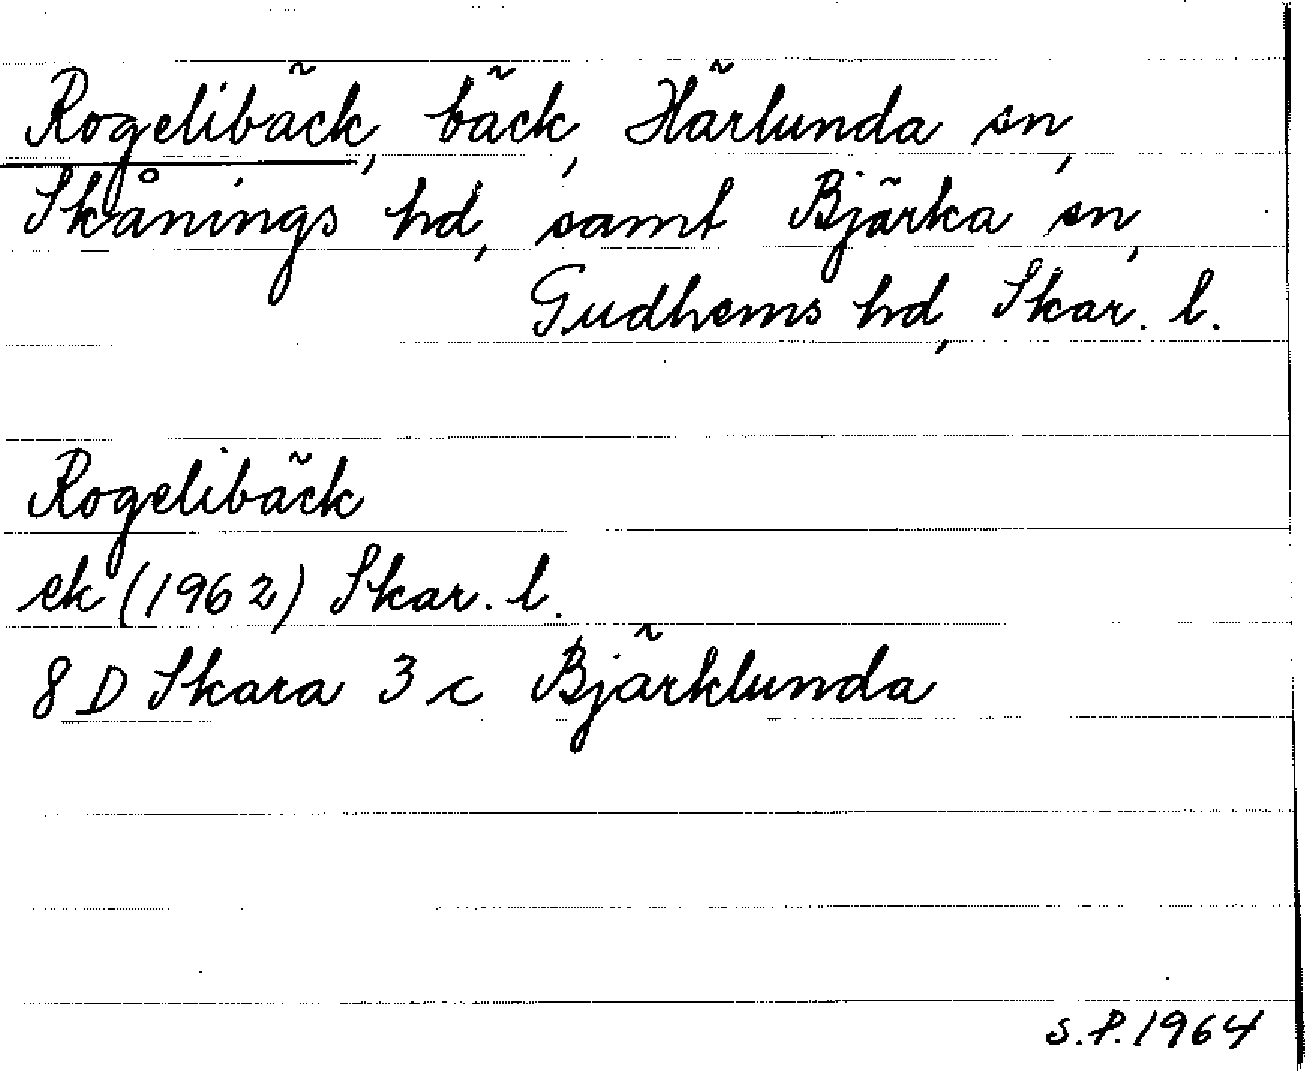 Rogelibäck, bäck, Härlunda sn,
Skånings hd, samt Bjärka sn,
Gudhems hd, Skar. l.
Rogelibäck
ek (1962) Skar. l.
8 D Skara 3 c Bjärklunda
S.P. 1964